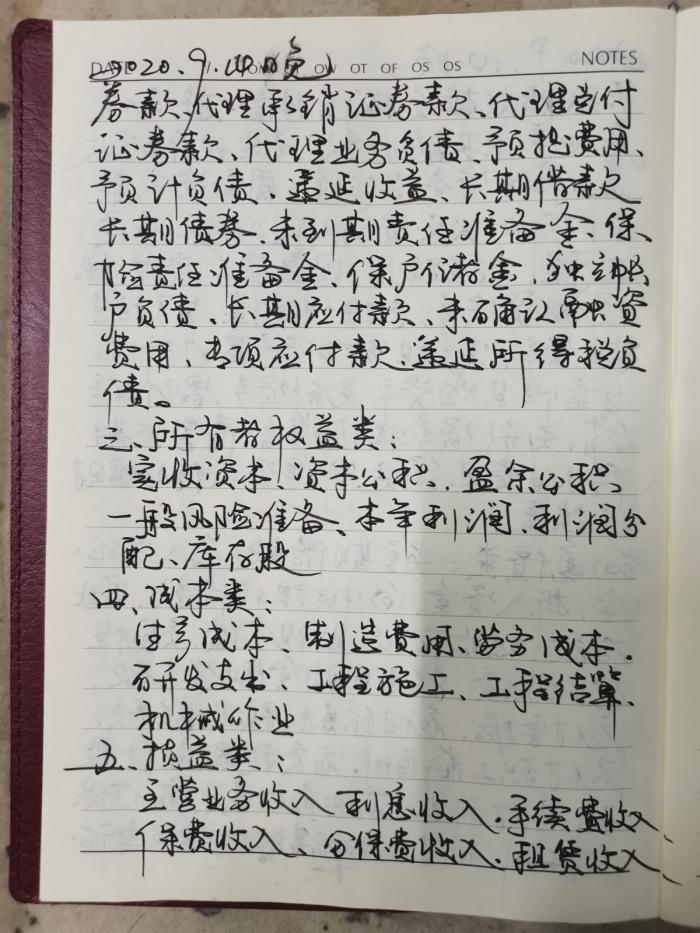 NOTES
2020.9.
OW OT OF OS OS
券款、代理承销证券款、代理兑付
证券款、代理业务负债、预提费用、
预计负债、递延收益、长期借款
长期债券、未到期责任准备金、保
险责任准备金、保户储金、独立帐
户负债、长期应付款、未确认融资
费用、专项应付款、递延所得税负
债。
三、所有者权益类:
实收资本、资本公积、盈余公积、
一般风险准备、本年利润、利润分
配、库存股
四、成本类:
生产成本、制造费用、劳务成本、
研发支出、工程施工、工程结算、
机械作业
五、损益类:
主营业务收入 利息收入、手续费收入、
保费收入、分保费收入、租赁收入、